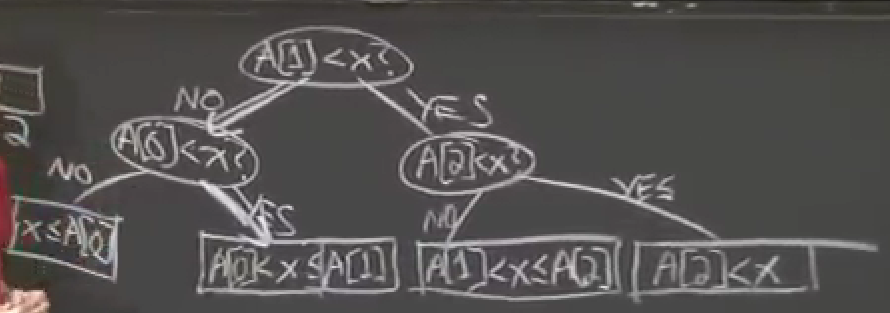 A[1]<x?
NO
YES
2
A[0]<x?
A[2]<x?
NO
YES
NO
YES
x≤A[0]
A[0]<x≤A[1]
A[1]<x≤A[2]
A[2]<x